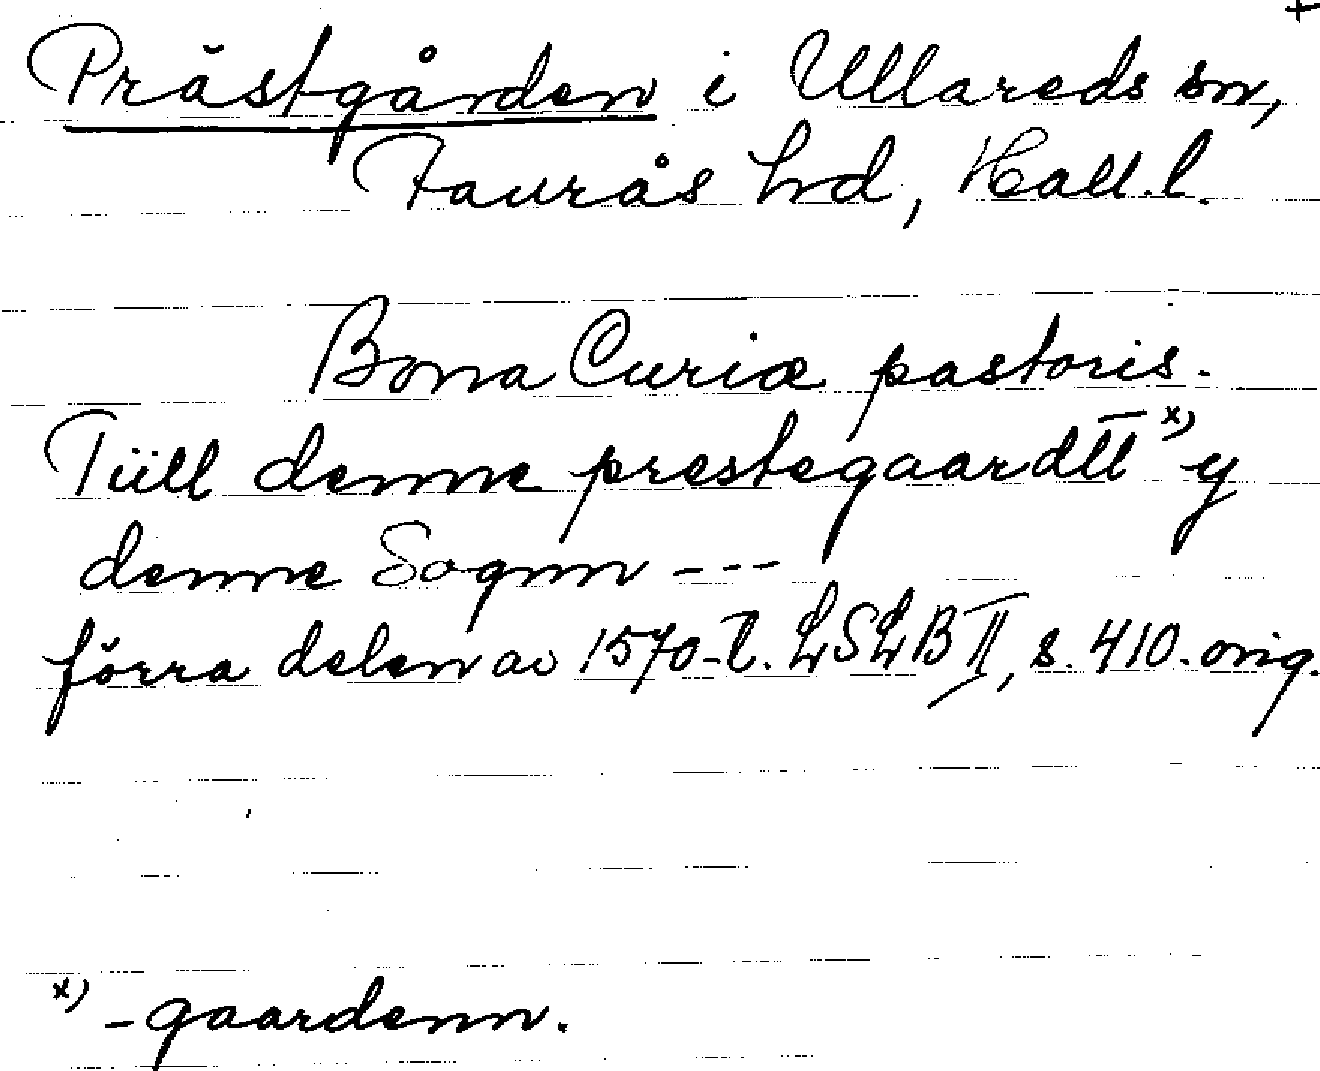 +
Prästgården i Ullareds sn,
Faurås hd, Hall.l.
Bona Curiæ pastoris.
Tüll denne prestegaardtt x) y
denne Sognn ---
förra delen av 1570-t. LSLB II, s. 410. orig.
x) -gaardenn.